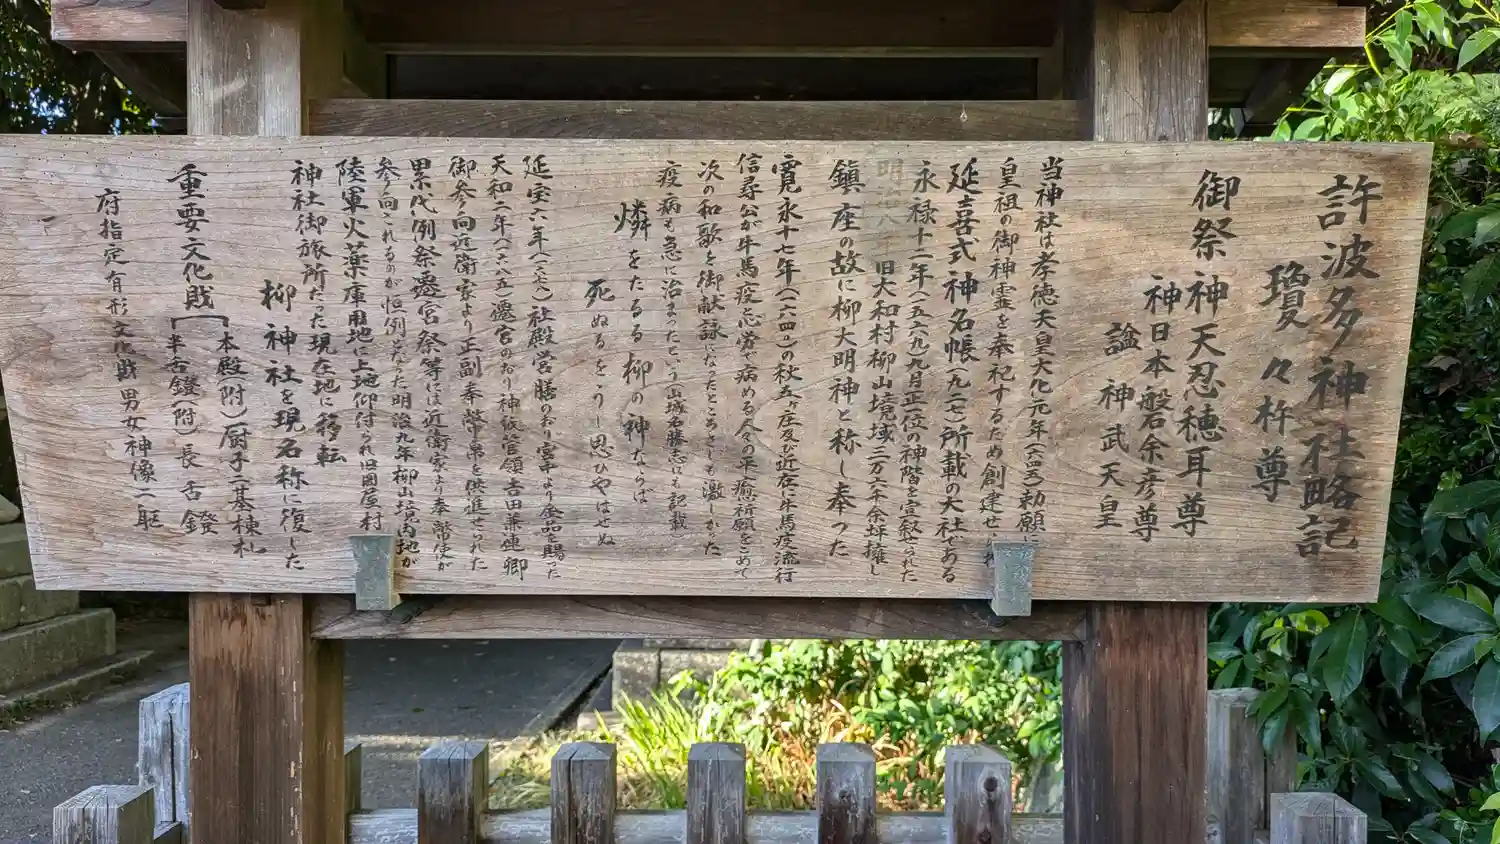 許波多神社略記
御祭神
瓊々杵尊
天忍穂耳尊
神日本磐余彦尊
諡 神武天皇
当神社は孝徳天皇大化元年(六四五)勅願に
皇祖の御神霊を奉祀するため創建せ
延喜式神名帳(九二七)所載の大社である
永禄十二年(一五六九)九月正一位の神階を宣叙された
明治八年旧大和村柳山境域三万六千余坪擁し
鎮座の故に柳大明神と称し奉った
寛永十七年(一六四〇)の秋五ヶ庄及び近在に牛馬疫流行
信尋公が牛馬疫に労て病める人々の平癒祈願をこめて
次の和歌を御献詠になったところさしも激しかった
疫病も急に治まったという(山城名勝志にも記載)
燐をたるる柳の神ならば
死ぬるをうしと思ひやはせぬ
延宝六年(一六七八)社殿営膳のおり宮中より金品を賜った
天和二年(一六八五)遷宮のおり神祇管領吉田兼連卿
御参向近衛家より正副奉幣帛を供進せられた
累代例祭遷宮祭等には近衛家より奉幣使が
参向されるのが恒例だった明治九年柳山境内地が
陸軍火薬庫用地に上地仰付られ旧岡屋村
神社御旅所だった現在地に移転
柳神社を現名称に復した
重要文化戝 本殿(附)厨子三基棟札
半舌鐙(附)長舌鐙
府指定有形文化戝男女神像二躯